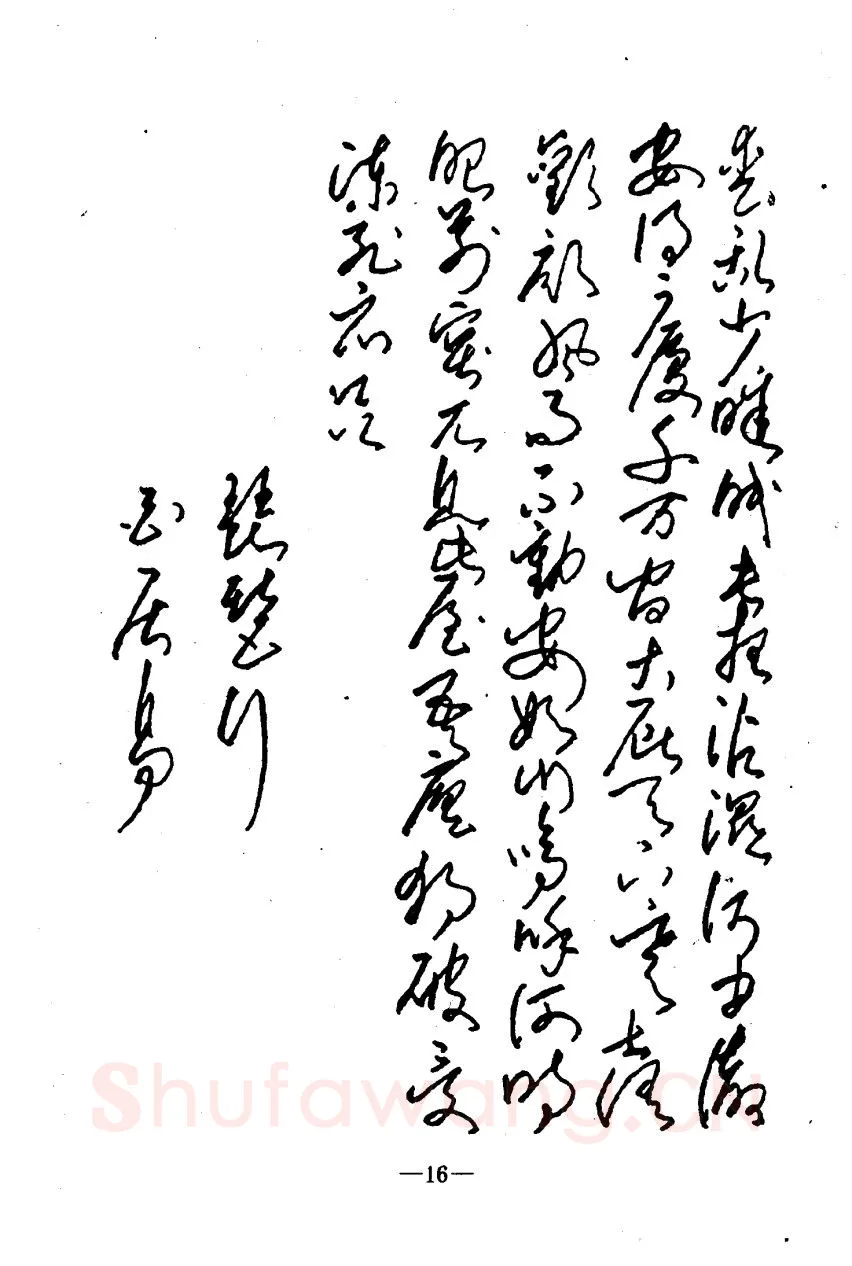 丧乱少睡眠长夜沾湿何由彻
安得广厦千万间大庇天下寒士俱
欢颜风雨不动安如山呜呼何时
眼前突兀见此屋吾庐独破受
冻死亦足
琵琶行
白居易
Shufawang.CN
—16—